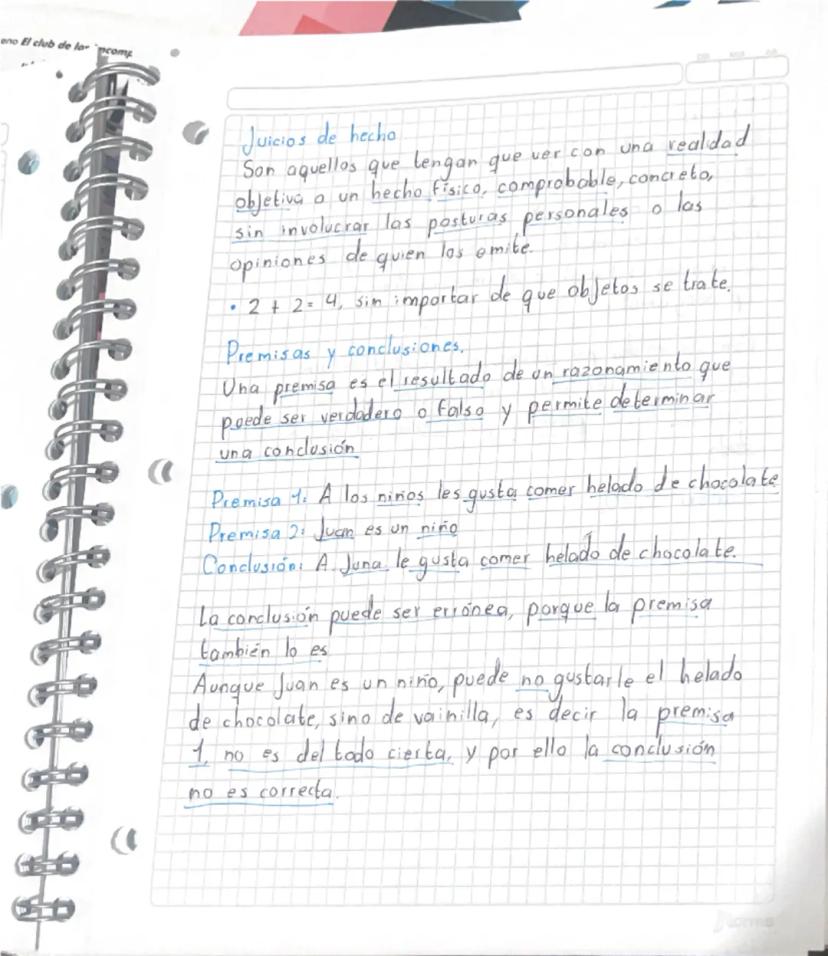 eno El club de los incomp
Juicios de hecho
Son aquellos que tengan que ver con una realidad
objetiva o un hecho físico, comprobable, concreto,
sin involucrar las posturas personales o las
opiniones de quien los emite.
• 2 + 2 = 4, sin importar de que objetos se trate.
Premisas y conclusiones.
Una premisa es el resultado de un razonamiento que
puede ser verdadero o falso y permite determinar
una conclusión
Premisa 1: A los niños les gusta comer helado de chocolate
Premisa 2: Juan es un niño
Conclusión: A Juna le gusta comer helado de chocolate.
La conclusión puede ser errónea, porque la premisa
también lo es
Aunque Juan es un niño, puede no gustarle el helado
de chocolate, sino de vainilla, es decir la premisa
1, no es del todo cierta, y por ello la conclusión
no es correcta.
Norma